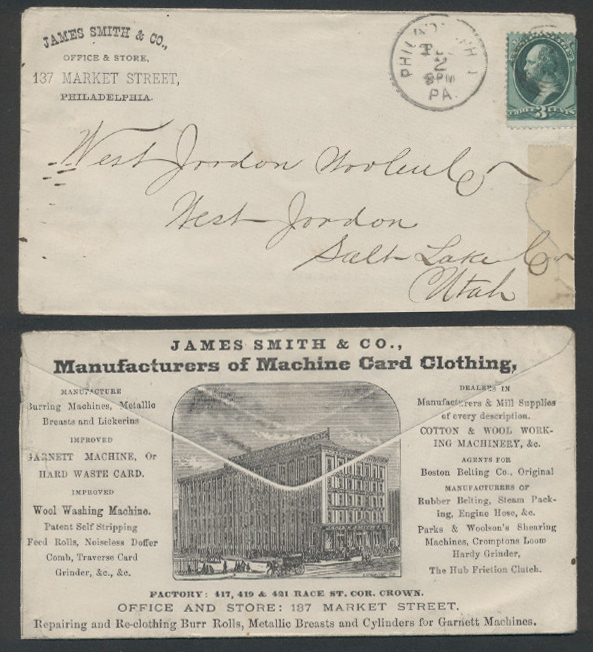 JAMES SMITH & CO.,
OFFICE & STORE,
137 MARKET STREET,
PHILADELPHIA.
PHILADELPH
2
8PM
PA.
THREE 3 CENTS
West Jordon Woolen Co
West Jordon
Salt Lake Co
Utah
JAMES SMITH & CO.,
Manufacturers of Machine Card Clothing,
MANUFACTURE
Burring Machines, Metallic
Breasts and Lickerins
IMPROVED
GARNETT MACHINE, Or
HARD WASTE CARD.
IMPROVED
Wool Washing Machine.
Patent Self Stripping
Feed Rolls, Noiseless Doffer
Comb, Traverse Card
Grinder, &c., &c.
DEALERS IN
Manufacturers & Mill Supplies
of every description.
COTTON & WOOL WORK-
ING MACHINERY, &c.
AGENTS FOR
Boston Belting Co., Original
MANUFACTURERS OF
Rubber Belting, Steam Pack-
ing, Engine Hose, &c.
Parks & Woolson's Shearing
Machines, Cromptons Loom
Hardy Grinder,
The Hub Friction Clutch.
FACTORY: 417, 419 & 421 RACE ST. COR. CROWN.
OFFICE AND STORE: 137 MARKET STREET.
Repairing and Re-clothing Burr Rolls, Metallic Breasts and Cylinders for Garnett Machines.